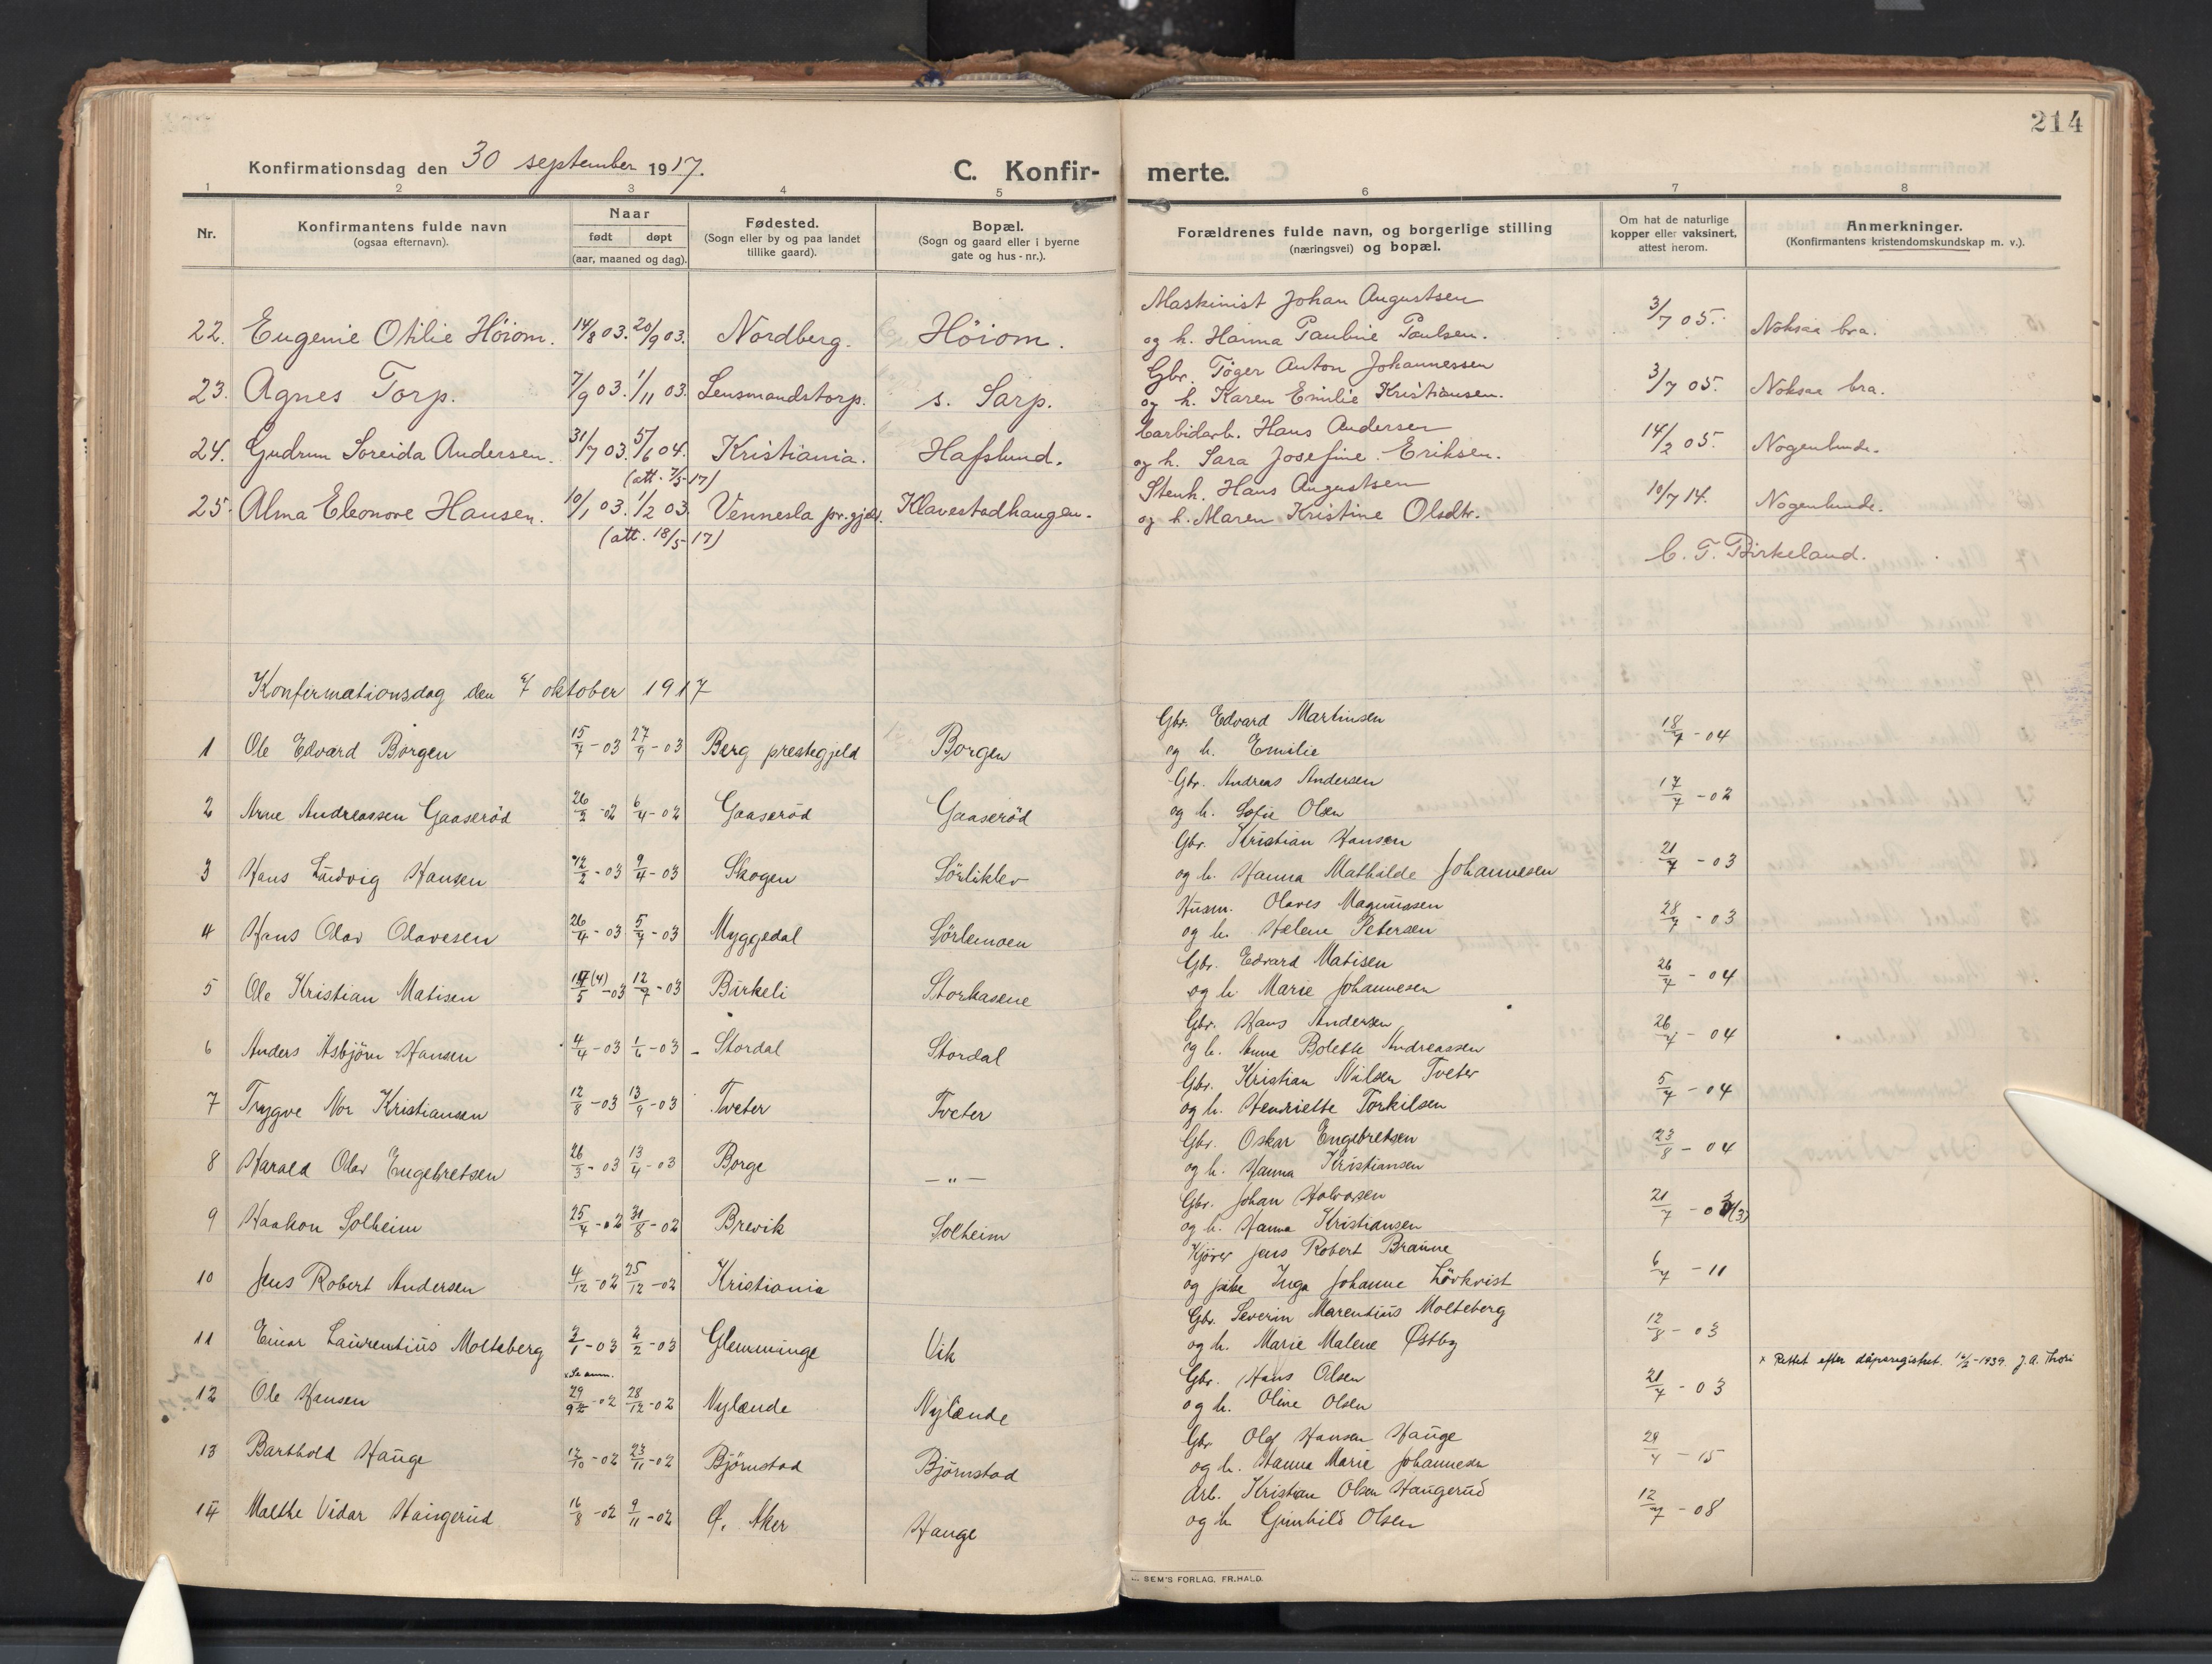 214
Konfirmationsdag den 30 september 1917.
C. Konfir- merte.
1 2 3 4 5 6 7 8
Nr.
Konfirmantens fulde navn
(ogsaa efternavn).
Naar
født døpt
(aar, maaned og dag).
Fødested.
(Sogn eller by og paa landet
tillike gaard).
Bopæl.
(Sogn og gaard eller i byerne
gate og hus-nr.).
Forældrenes fulde navn, og borgerlige stilling
(næringsvei) og bopæl.
Om hat de naturlige
kopper eller vaksinert,
attest herom.
Anmerkninger.
(Konfirmantens kristendomskundskap m. v.).
Maskinist Johan Augustsen
22. Eugenie Otilie Höiom. 14/8 03. 20/9 03. Nordberg. Höiom. og h. Hanna Pauline Paulsen. 3/7 05. Noksaa bra.
Gbr. Töger Anton Johannessen
23. Agnes Torp. 7/9 03. 1/11 03. Lensmandstorp. s. Sarp. og h. Karen Emilie Kristiansen. 3/7 05. Noksaa bra.
Carbidarb. Hans Andersen
24. Gudrun Soreida Andersen. 31/7 03. 5/6 04. Kristiania. Hafslund. og h. Sara Josefine Eriksen. 14/2 05. Nogenlunde.
(att. 7/5-17)
Stenh. Hans Augustsen
25. Alma Eleonore Hansen. 10/1 03. 1/2 03. Vennesla pr.gjeld. Klavestadhaugen. og h. Maren Kristine Olsdtr. 10/7 14. Nogenlunde.
(att. 18/5-17)
C. F. Birkeland.
Konfirmationsdag den 7 oktober 1917
Gbr. Edvard Martinsen
1 Ole Edvard Borgen 15/7-03 27/9-03 Berg prestegjeld Borgen og h. Emilie 18/7-04
Gbr. Andreas Andersen
2 Arne Andreassen Gaaseröd 26/2-02 6/4-02 Gaaseröd Gaaseröd og h. Sofie Olsen 17/7-02
Gbr. Kristian Hansen
3 Hans Ludvig Hansen 12/2-03 9/4-03 Skogen Sörliklev og h. Hanna Mathilde Johannesen 21/7-03
Husm. Olaves Magnussen
4 Hans Olav Olavesen 26/4-03 5/7-03 Myggedal Sörlemoen og h. Helene Petersen 28/7-03
Gbr. Edvard Matisen
5 Ole Kristian Matisen 14(4)/5-03 12/7-03 Birkeli Storkasene og h. Marie Johannesen 26/7-04
Gbr. Hans Andersen
6 Anders Asbjörn Hansen 4/4-03 1/6-03 Stordal Stordal og h. Anna Bolette Andreassen 26/7-04
Gbr. Kristian Nilsen Tveter
7 Trygve Nor Kristiansen 12/8-03 13/9-03 Tveter Tveter og h. Henriette Torkilsen 5/7-04
Gbr. Oskar Engebretsen
8 Harald Olav Engebretsen 26/3-03 13/4-03 Borge —"— og h. Hanna Kristiansen 23/8-04
Gbr. Johan Halvorsen
9 Haakon Solheim 25/7-02 31/8-02 Brevik Solheim og h. Hanna Kristiansen 21/7-03 (3)
Kjörer Jens Robert Braune
10 Jens Robert Andersen 4/12-02 25/12-02 Kristiania og pike Inga Johanne Lövkvist 6/7-11
Gbr. Severin Marentius Molteberg
11 Einar Laurentius Molteberg 3/1-03 2/2-03 Glemminge Vik og h. Marie Malene Østby 12/8-03
x Rettet efter dåpsregistret. 16/2-1939. J. A. Thori
x Se anm.
Gbr. Hans Olsen
12 Ole Hansen 29/9-02 28/12-02 Nylænde Nylænde og h. Oline Olsen 21/7-03
Gbr. Olof Hansen Hauge
13 Barthold Hauge 12/10-02 23/11-02 Björnstad Björnstad og h. Hanna Marie Johannesen 29/4-15
Arb. Kristian Olsen Haugerud
14 Malthe Vidar Haugerud 16/8-02 9/11-02 Ø. Aker Hauge og h. Gunhild Olsen 12/7-08
SEM'S FORLAG, FR.HALD.